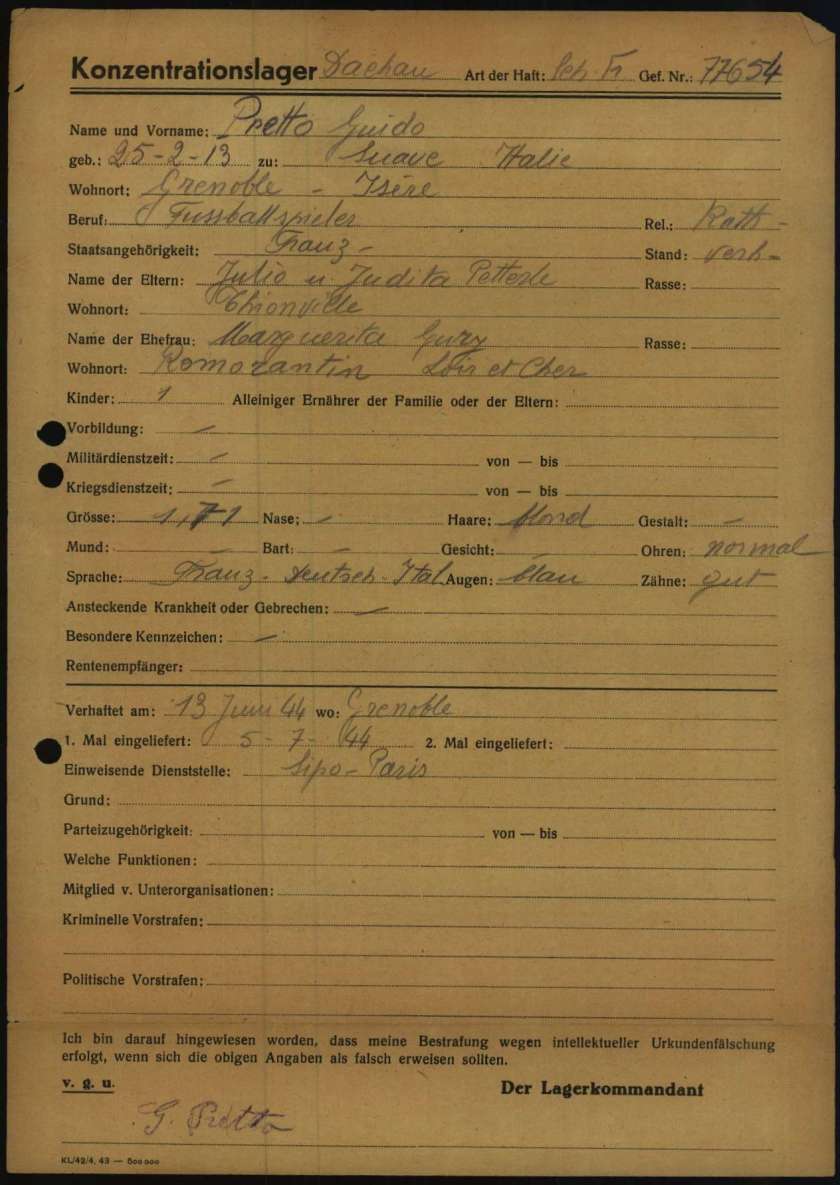 Konzentrationslager Dachau Art der Haft: Sch. Fr Gef. Nr.: 77654
Name und Vorname: Pretto Guido
geb.: 25-2-13 zu: Suave Italie
Wohnort: Grenoble - Isère
Beruf: Fussballspieler Rel.: Kath -
Staatsangehörigkeit: Franz - Stand: verh -
Name der Eltern: Julio u. Judita Petterle Rasse:
Wohnort: Thionville
Name der Ehefrau: Marguerita Gury Rasse:
Wohnort: Romorantin Loir et Cher
Kinder: 1 Alleiniger Ernährer der Familie oder der Eltern:
Vorbildung: -
Militärdienstzeit: - von — bis
Kriegsdienstzeit: - von — bis
Grösse: 1,71 Nase: - Haare: blond Gestalt: -
Mund: - Bart: - Gesicht: - Ohren: normal
Sprache: Franz - Deutsch - Ital Augen: blau Zähne: gut
Ansteckende Krankheit oder Gebrechen: -
Besondere Kennzeichen: -
Rentenempfänger:
Verhaftet am: 13 Juni 44 wo: Grenoble
1. Mal eingeliefert: 5 - 7 - 44 2. Mal eingeliefert:
Einweisende Dienststelle: Sipo - Paris
Grund:
Parteizugehörigkeit: von — bis
Welche Funktionen:
Mitglied v. Unterorganisationen:
Kriminelle Vorstrafen:
Politische Vorstrafen:
Ich bin darauf hingewiesen worden, dass meine Bestrafung wegen intellektueller Urkundenfälschung
erfolgt, wenn sich die obigen Angaben als falsch erweisen sollten.
v. g. u. Der Lagerkommandant
G. Pretto
KL/42/4. 43 — 500 000